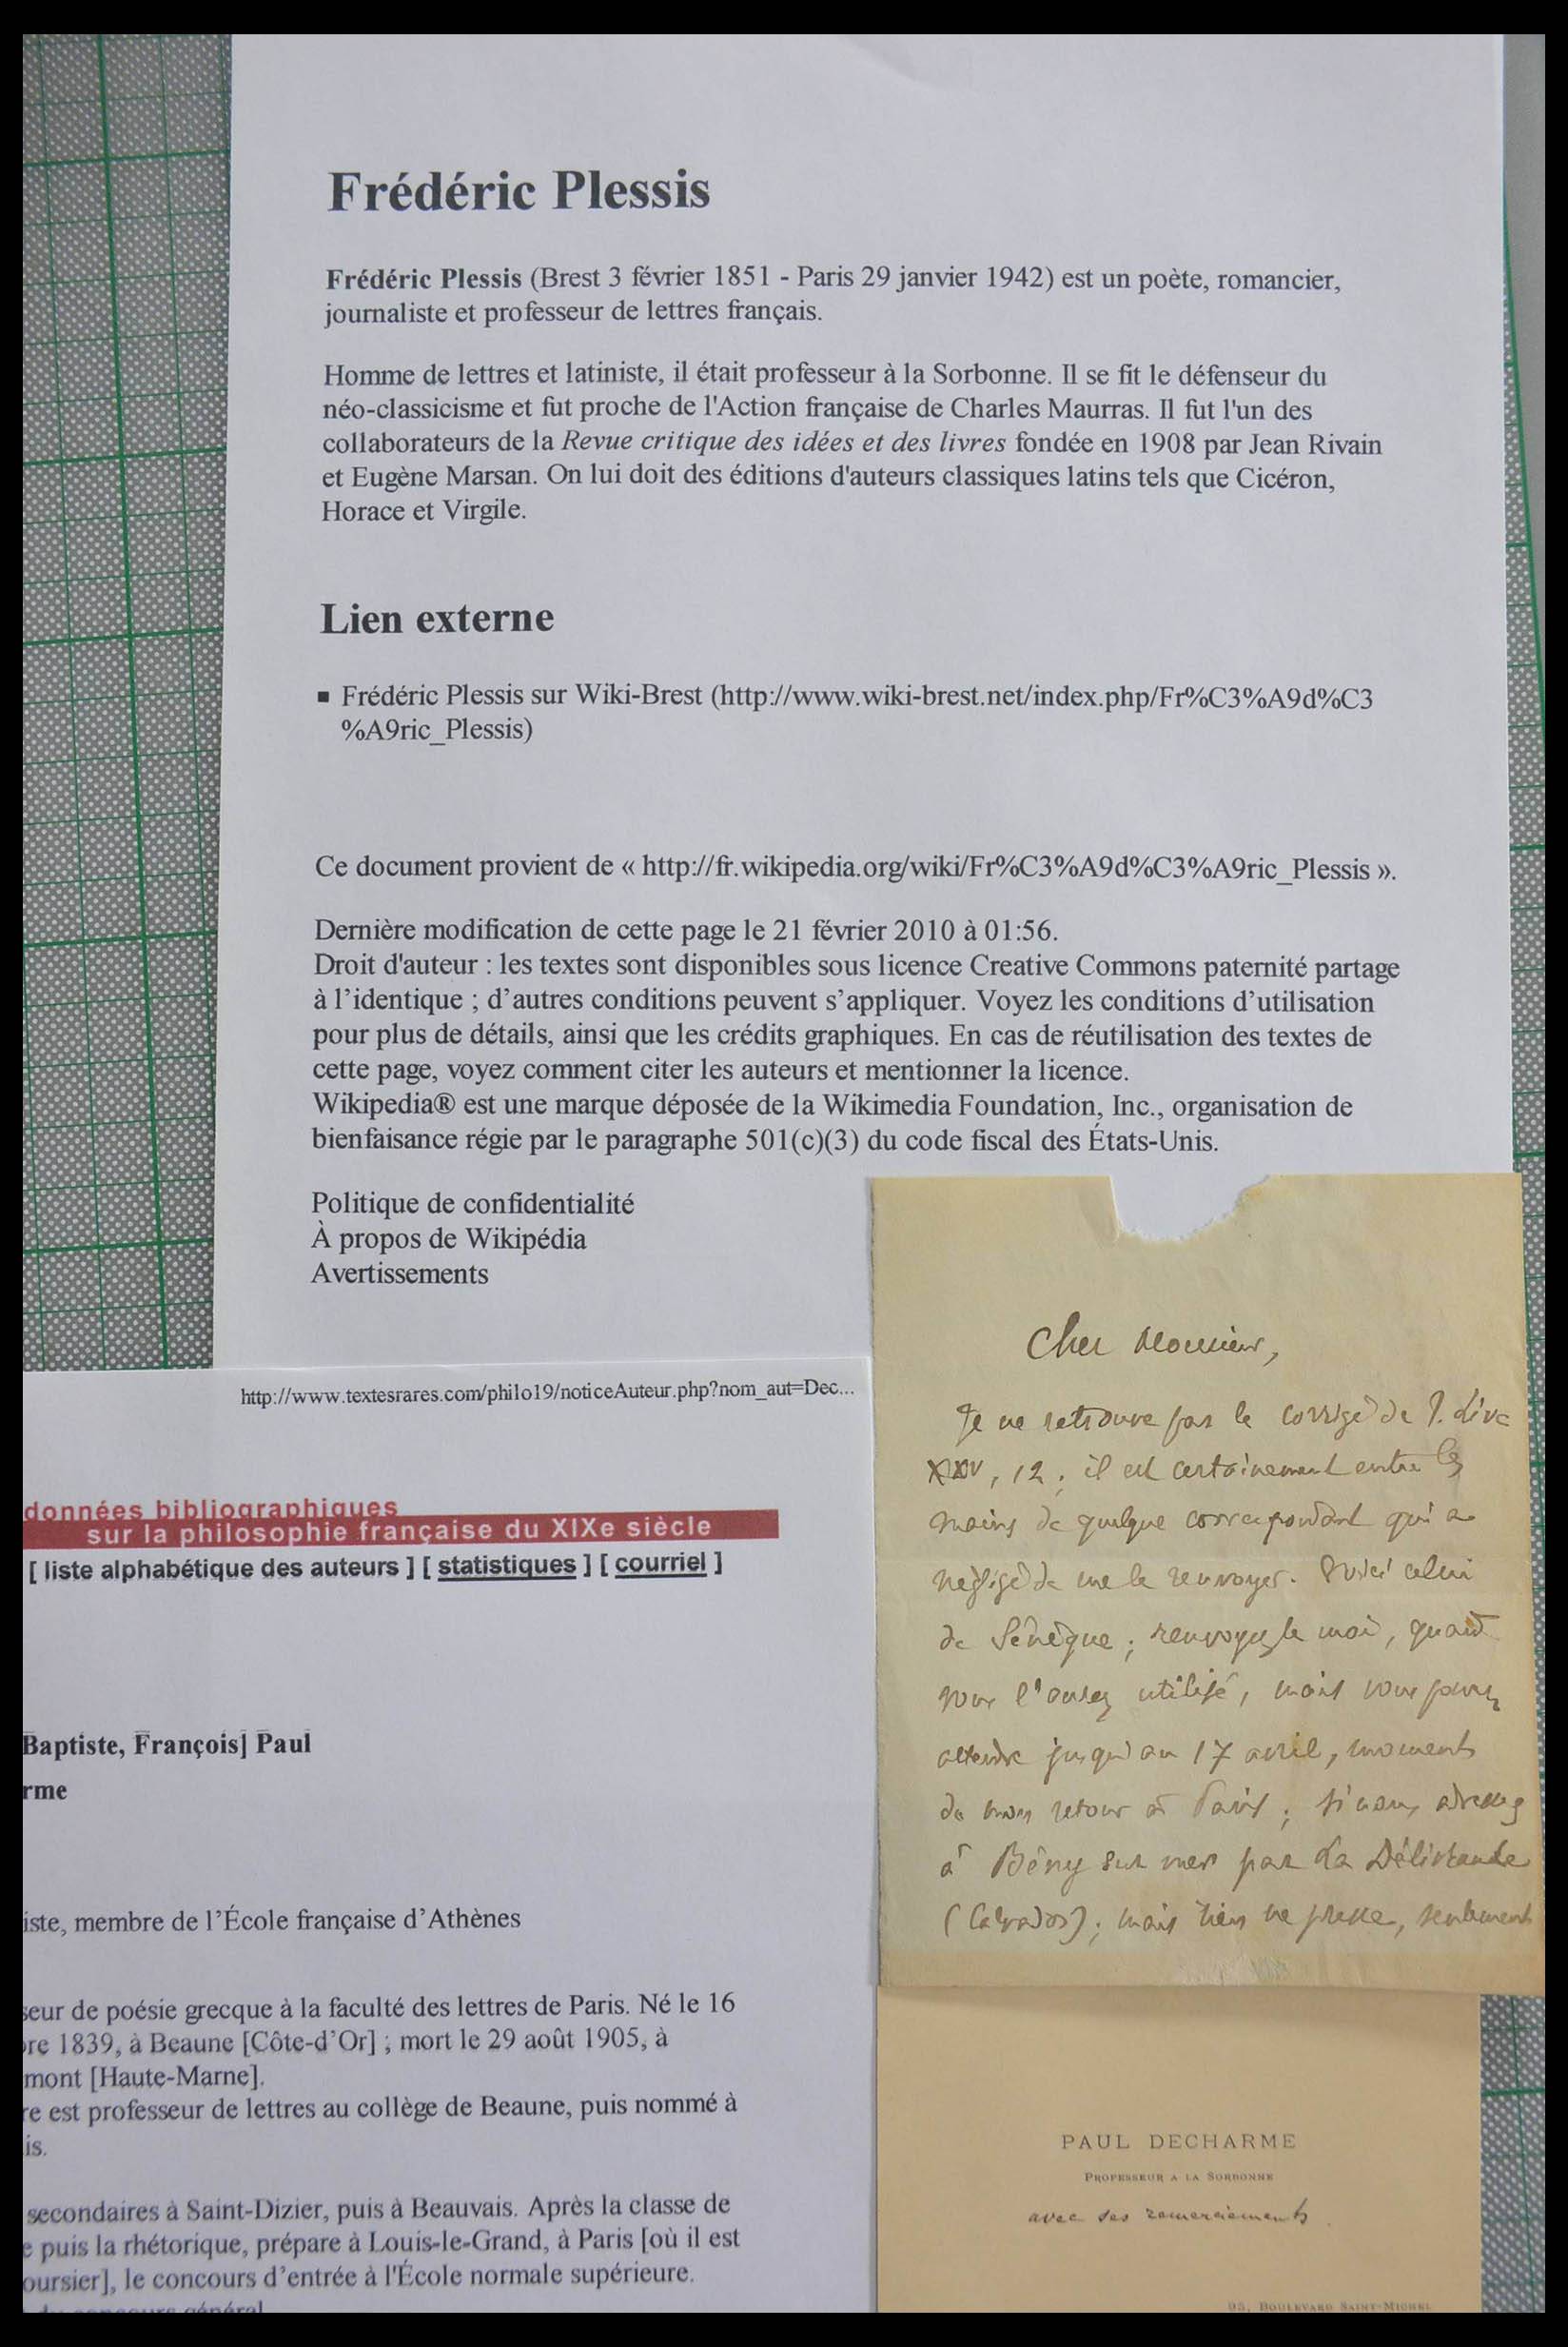 Frédéric Plessis
Frédéric Plessis (Brest 3 février 1851 - Paris 29 janvier 1942) est un poète, romancier,
journaliste et professeur de lettres français.
Homme de lettres et latiniste, il était professeur à la Sorbonne. Il se fit le défenseur du
néo-classicisme et fut proche de l'Action française de Charles Maurras. Il fut l'un des
collaborateurs de la Revue critique des idées et des livres fondée en 1908 par Jean Rivain
et Eugène Marsan. On lui doit des éditions d'auteurs classiques latins tels que Cicéron,
Horace et Virgile.
Lien externe
▪ Frédéric Plessis sur Wiki-Brest (http://www.wiki-brest.net/index.php/Fr%C3%A9d%C3
%A9ric_Plessis)
Ce document provient de « http://fr.wikipedia.org/wiki/Fr%C3%A9d%C3%A9ric_Plessis ».
Dernière modification de cette page le 21 février 2010 à 01:56.
Droit d'auteur : les textes sont disponibles sous licence Creative Commons paternité partage
à l’identique ; d’autres conditions peuvent s’appliquer. Voyez les conditions d’utilisation
pour plus de détails, ainsi que les crédits graphiques. En cas de réutilisation des textes de
cette page, voyez comment citer les auteurs et mentionner la licence.
Wikipedia® est une marque déposée de la Wikimedia Foundation, Inc., organisation de
bienfaisance régie par le paragraphe 501(c)(3) du code fiscal des États-Unis.
Politique de confidentialité
À propos de Wikipédia
Avertissements
http://www.textesrares.com/philo19/noticeAuteur.php?nom_aut=Dec...
données bibliographiques
sur la philosophie française du XIXe siècle
[ liste alphabétique des auteurs ] [ statistiques ] [ courriel ]
Baptiste, François] Paul
rme
iste, membre de l’École française d’Athènes
seur de poésie grecque à la faculté des lettres de Paris. Né le 16
bre 1839, à Beaune [Côte-d’Or] ; mort le 29 août 1905, à
mont [Haute-Marne].
re est professeur de lettres au collège de Beaune, puis nommé à
is.
secondaires à Saint-Dizier, puis à Beauvais. Après la classe de
e puis la rhétorique, prépare à Louis-le-Grand, à Paris [où il est
oursier], le concours d’entrée à l'École normale supérieure.
du concours général
Cher Monsieur,
Je ne retrouve pas le corrigé de T. Live
XXV, 12 ; il est certainement entre les
mains de quelque correspondant qui a
négligé de me le renvoyer. Voici celui
de Sénèque ; renvoyez le moi, quand
vous l'aurez utilisé, mais vous pouvez
attendre jusqu'au 17 avril, moment
de mon retour à Paris ; sinon, adressez
à Bény sur mer par La Délivrande
(Calvados) ; mais rien ne presse, seulement
PAUL DECHARME
PROFESSEUR A LA SORBONNE
avec ses remerciements.
95, BOULEVARD SAINT-MICHEL